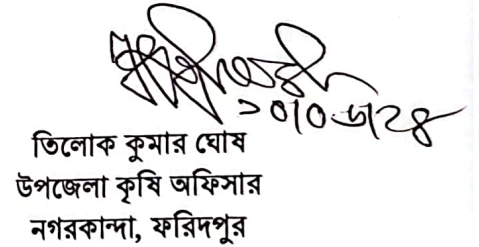 ১০/০৬/২৪
তিলোক কুমার ঘোষ
উপজেলা কৃষি অফিসার
নগরকান্দা, ফরিদপুর